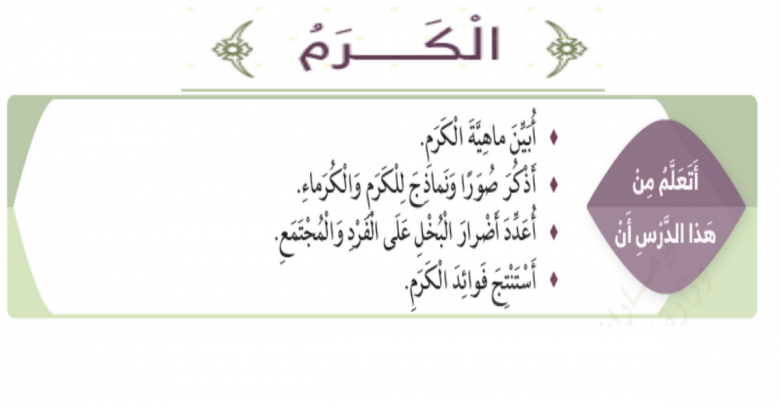 الْكَـــرَمُ
أَتَعَلَّمُ مِنْ
هَذا الدَّرْسِ أَنْ
أُبَيِّنَ ماهِيَّةَ الْكَرَمِ.
أَذْكُرَ صُوَرًا وَنَماذِجَ لِلْكَرَمِ وَالْكُرَماءِ.
أُعَدِّدَ أَضْرارَ الْبُخْلِ عَلَى الْفَرْدِ وَالْمُجْتَمَعِ.
أَسْتَنْتِجَ فَوائِدَ الْكَرَمِ.